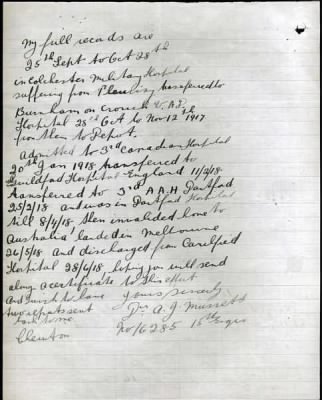 My full records are
25th Sept to Oct 28th
in Colchester Military Hospital
suffering from Pleurisy transferred to
Burnham on Crouch V.A.D.
Hospital 28th Oct to Nov 12th 1917
from then to Depot.
Admitted to 3rd Canadian Hospital
20th Jan 1918 transferred to
Guildford Hospital England 11/2/18
transferred to 3rd A A H Dartford
25/2/18 and was in Dartford Hospital
till 8/4/18 then invalided home to
Australia landed in Melbourne
26/5/18 and discharged from Caulfield
Hospital 28/6/18, hoping you will send
along a certificate to this effect
And wish to have Yours Sincerly
two reports sent A. J.
back to me No 16285 15th Engrs